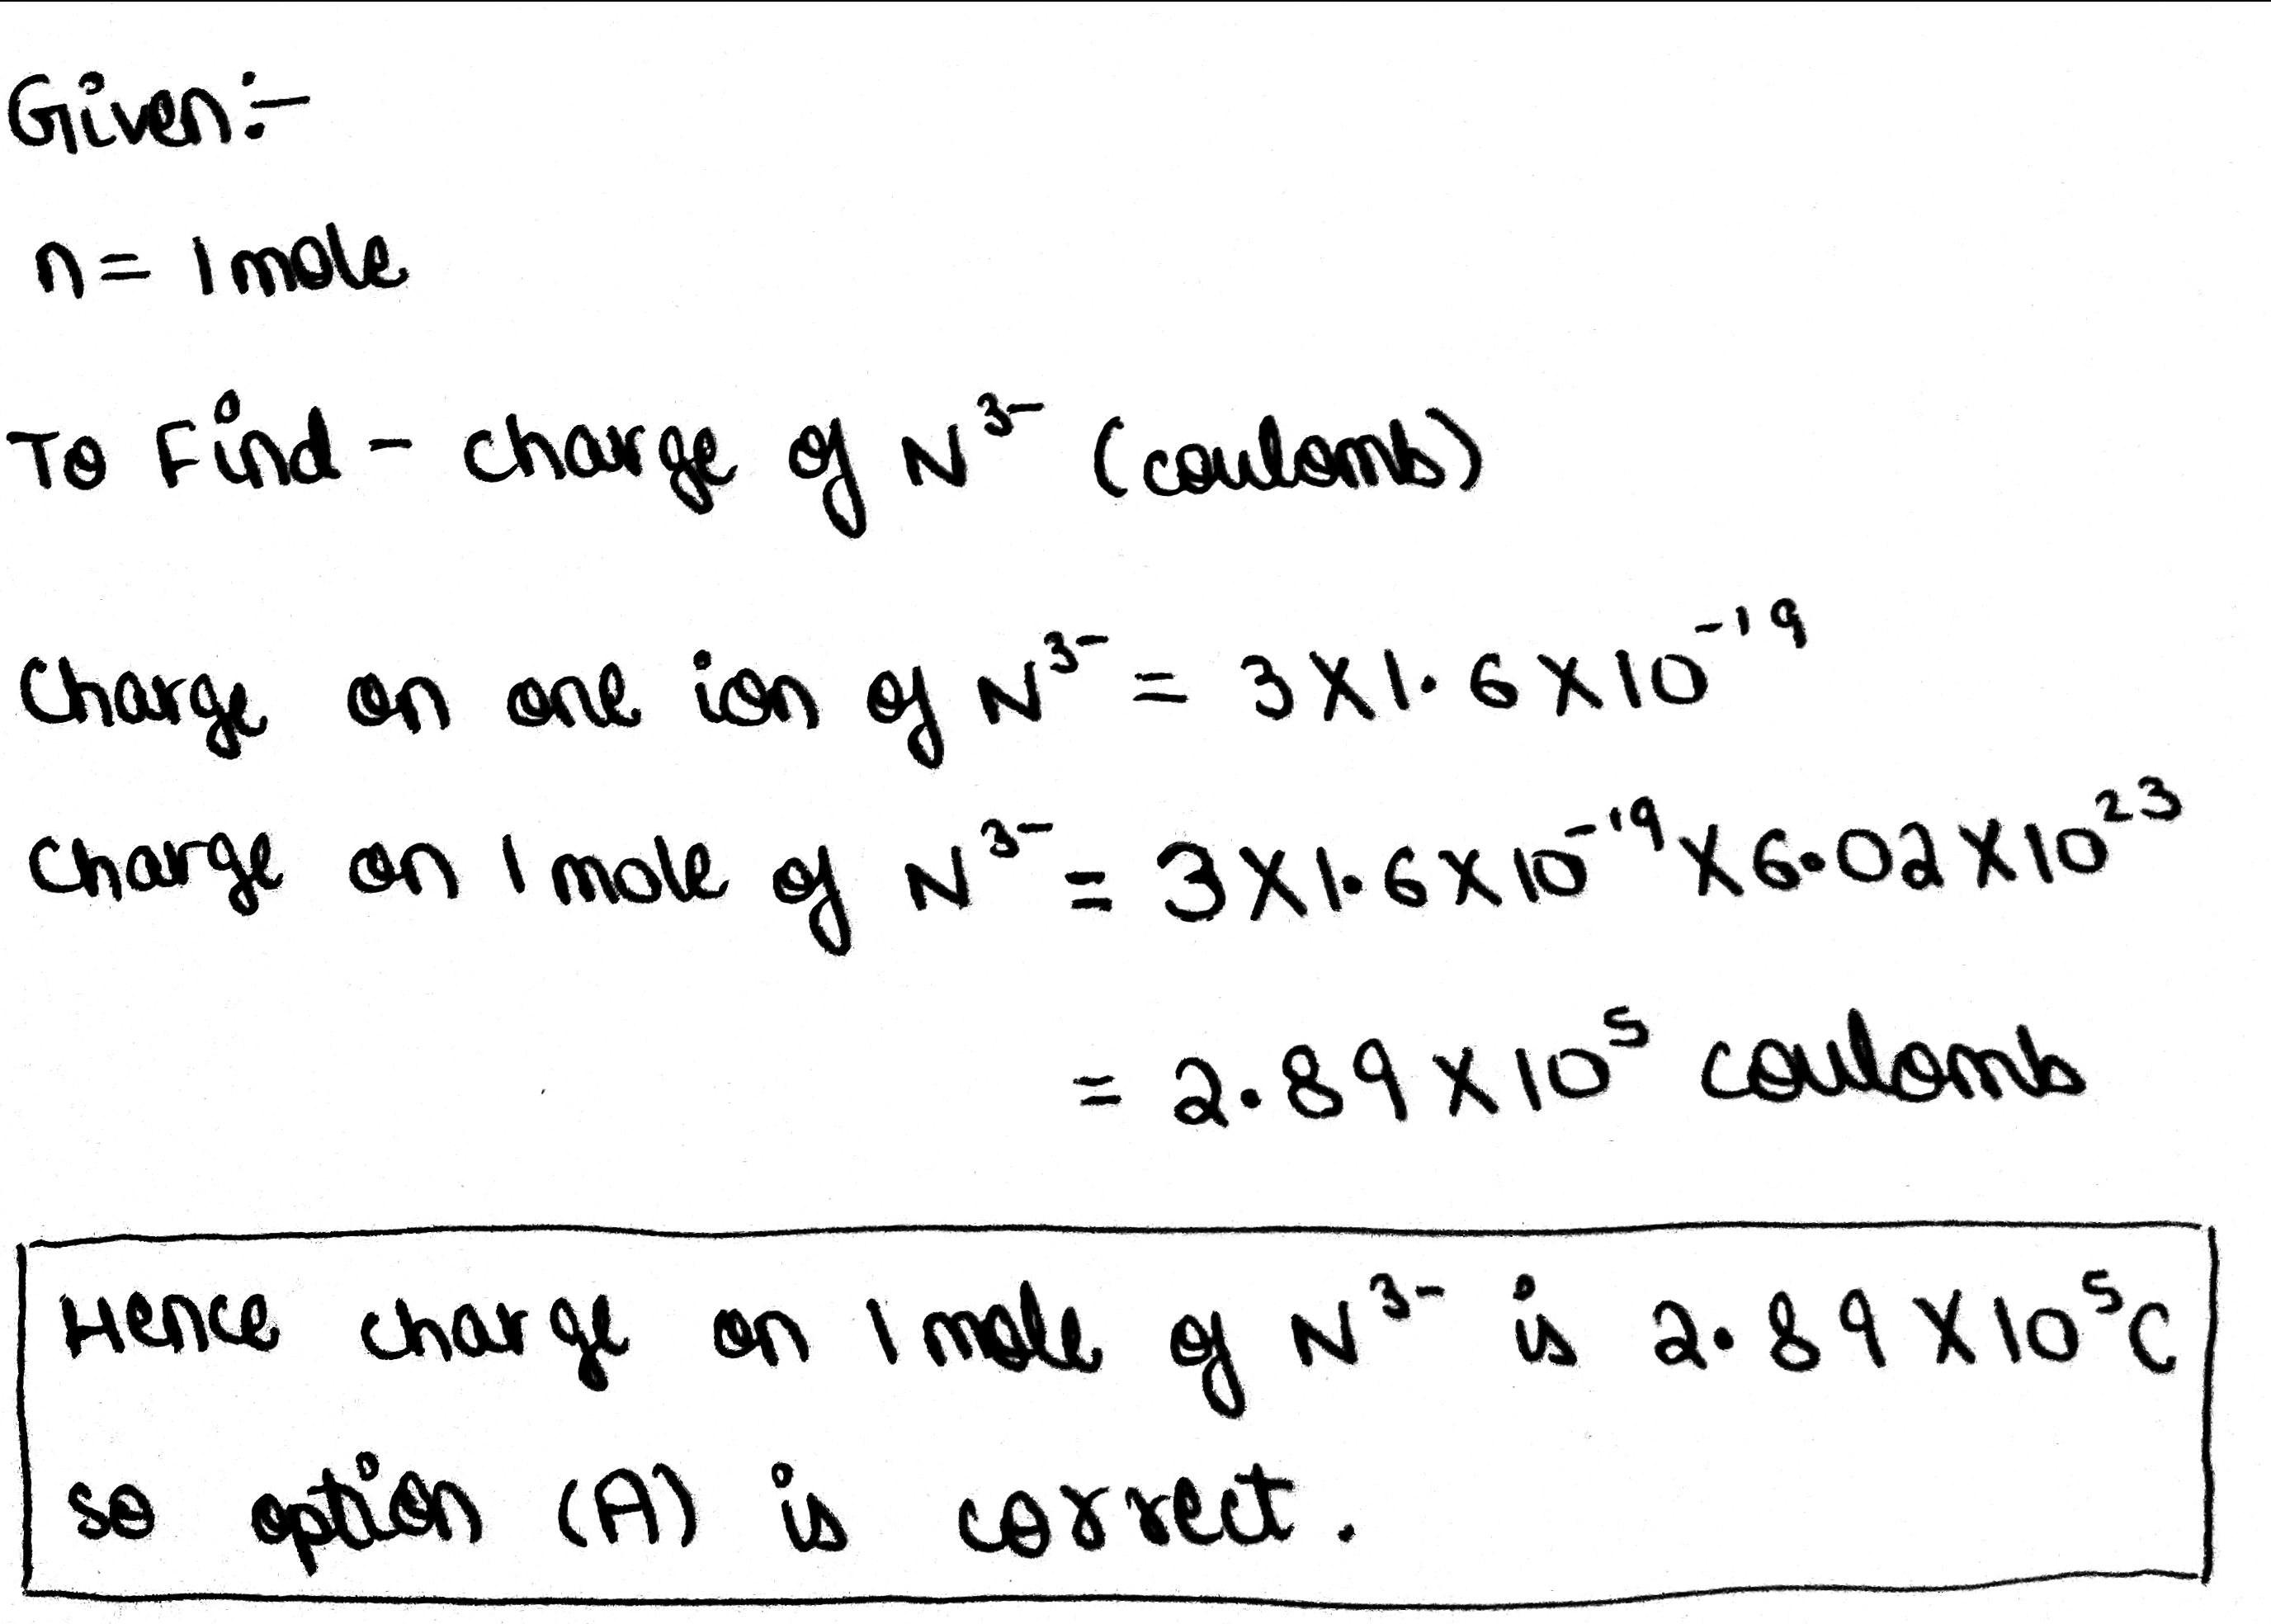 Given:-
n = 1 mole
To Find - charge of N³⁻ (coulomb)
Charge on one ion of N³⁻ = 3 X 1.6 X 10⁻¹⁹
Charge on 1 mole of N³⁻ = 3 X 1.6 X 10⁻¹⁹ X 6.02 X 10²³
= 2.89 X 10⁵ coulomb
Hence charge on 1 mole of N³⁻ is 2.89 X 10⁵C
so option (A) is correct.